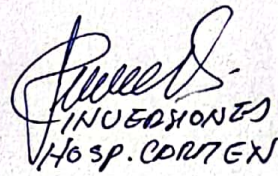 INVERSIONES
HOSP. CARMEN